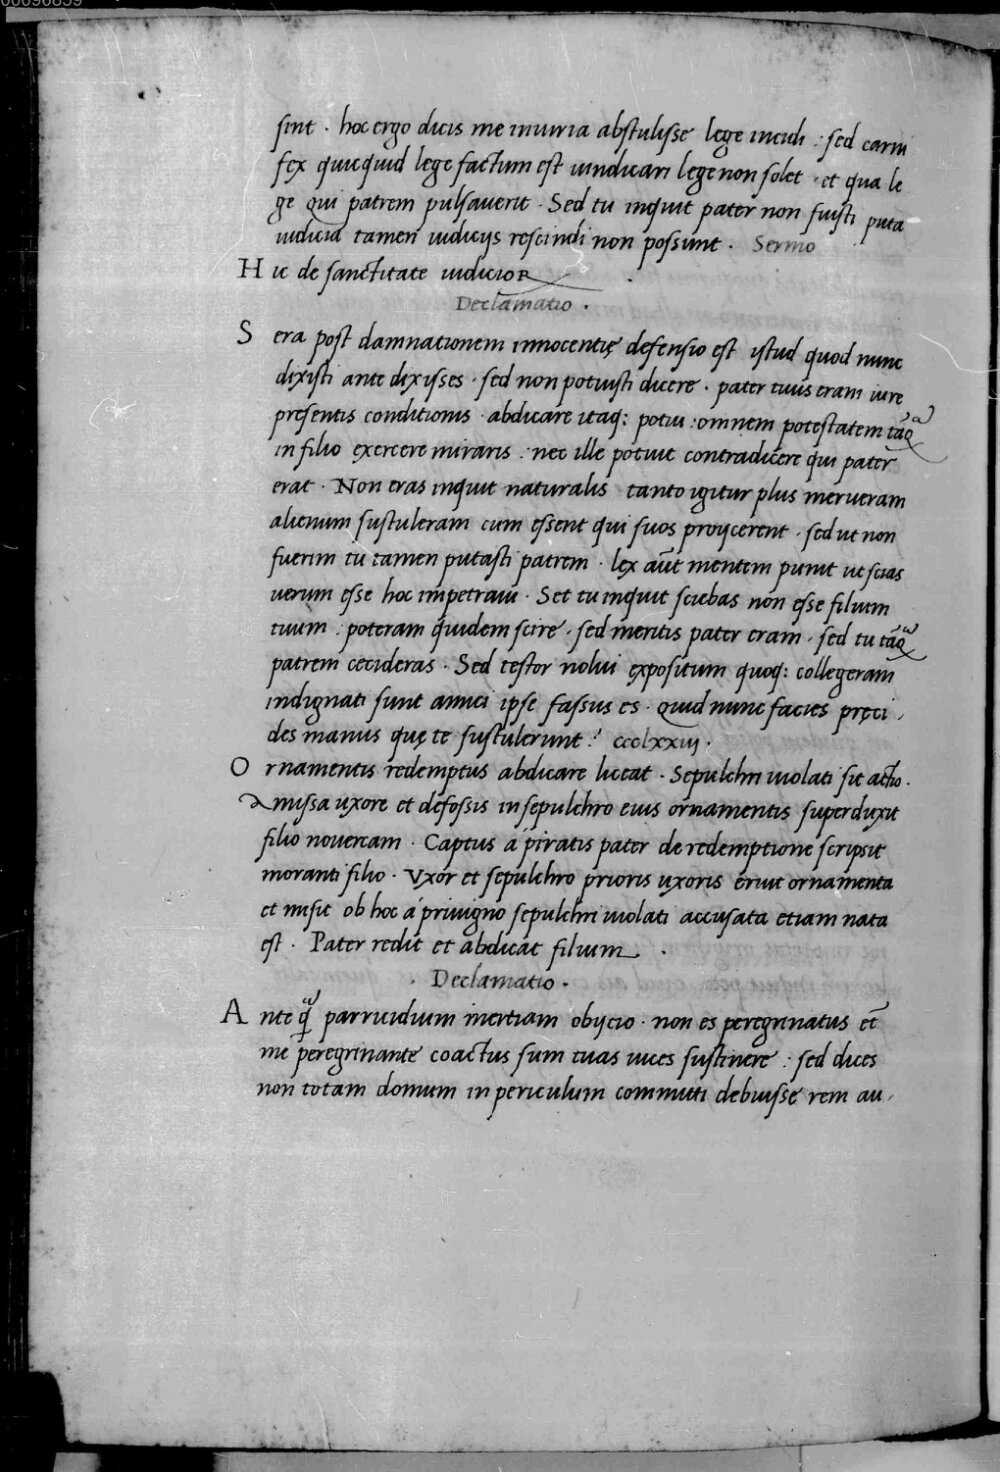 00090859
sint . hoc ergo dicis me iniuria abstulisse lege incidi : sed carni
fex quicquid lege factum est uindicari lege non solet . et qua le
ge qui patrem pulsauerit . Sed tu inquit pater non fuisti puta
iudicia tamen iudicijs rescindi non possunt . Sermo
Hic de sanctitate iudicioꝝ .
Declamatio .
Sera post damnationem innocentię defensio est istud quod nunc
dixisti ante dixisses . sed non potuisti dicere . pater tuus eram iure
presentis conditionis . abdicare itaq; potui : omnem potestatem tāqᵃ
in filio exercere miraris : nec ille potuit contradicere qui pater
erat . Non eras inquit naturalis tanto igitur plus merueram
alienum sustuleram cum essent qui suos proijcerent . sed ut non
fuerim tu tamen putasti patrem . lex aūt mentem punit ut scias
uerum esse hoc impetraui . Set tu inquit sciebas non esse filium
tuum : poteram quidem scire . sed meritis pater eram . sed tu tāqᵃ
patrem cecideras . Sed testor nolui expositum quoq; collegeram
indignati sunt amici ipse fassus es . quid nunc facies pręci ,
des manus quę te sustulerunt ? ccclxxiij .
Ornamentis redemptus abdicare liceat . Sepulchri uiolati sit actio .
Amissa uxore et defossis in sepulchro eius ornamentis superduxit
filio nouercam . Captus a piratis pater de redemptione scripsit
moranti filio . Vxor et sepulchro prioris uxoris eruit ornamenta
et misit ob hoc a priuigno sepulchri uiolati accusata etiam nata
est . Pater redit et abdicat filium .
. Declamatio .
Ante qᵃ parricidium inertiam obijcio . non es peregrinatus et
me peregrinante coactus sum tuas uices sustinere : sed dices
non totam domum in periculum commuti debuisse rem au ,